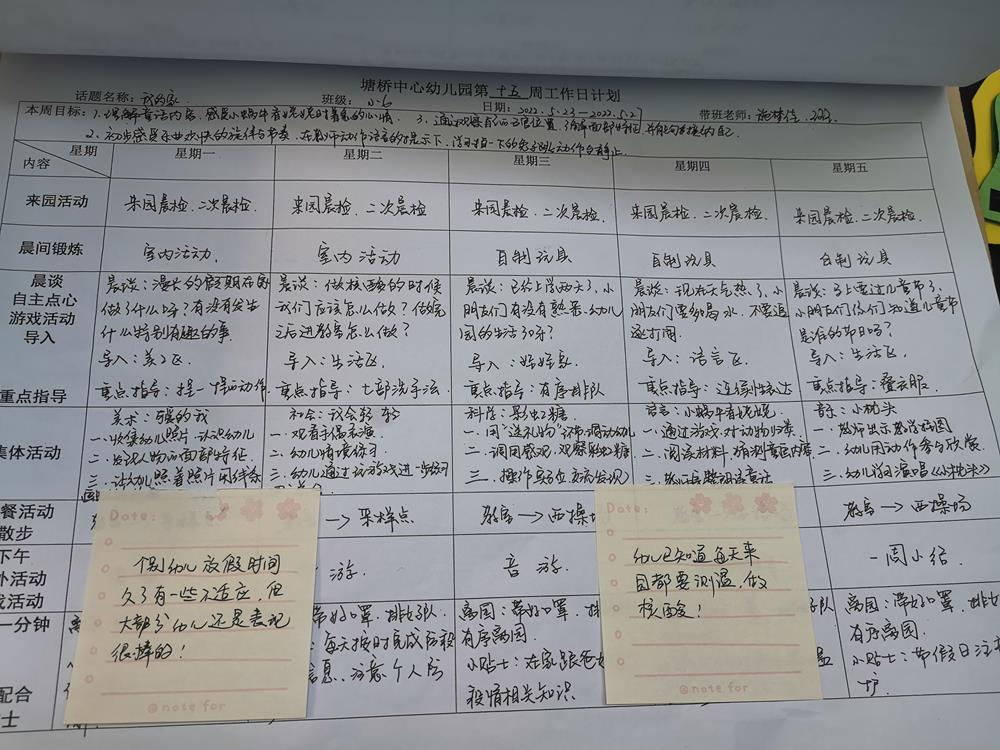 塘桥中心幼儿园第 十五 周工作日计划
话题名称：我的家 班级：小6 日期：2022.5.23—2022.5.27 带班老师：
本周目标：1.理解童话内容，感受小蜗牛 时着急的心情。 3.通过观察自己的五官位置，
2.初步感受 的旋律与节奏，在 的提示下，
星期 内容 星期一 星期二 星期三 星期四 星期五
来园活动 来园晨检、二次晨检. 来园晨检、二次晨检 来园晨检、二次晨检. 来园晨检、二次晨检. 来园晨检、二次晨检.
晨间锻炼 室内活动. 室内活动 自制玩具 自制玩具 自制玩具
晨谈 自主点心 游戏活动 导入
晨谈：漫长的假期在家
做了什么呀？有没有发生
什么特别有趣的事.
导入：美工区.
晨谈：做核酸的时候
我们应该怎么做？做完
后进教室怎么做？
导入：生活区.
晨谈：已经上学两天了，小
朋友们有没有熟悉幼儿
园的生活了呀？
导入：娃娃家
晨谈：现在天气热了，小
朋友们要多喝水，不要追
逐打闹.
导入：语言区.
晨谈：马上要过儿童节了，
小朋友们你们知道儿童节
是谁的节日吗？
导入：生活区.
重点指导 重点指导：捏一捏的动作 重点指导：七部洗手法. 重点指导：有序排队 重点指导：连续性表达 重点指导：叠衣服
集体活动
美术：
一.收集幼儿照片，认识幼儿
二. 人物的面部特征.
三.让幼儿照着照片用线条
社会：我会轻轻
一.观看手偶表演
二.幼儿情境练习
三.幼儿通过玩游戏进一步练习
科学：彩虹糖
一.用“送礼物” 调动幼儿
二.调用感观，观察彩虹糖
三.操作实验，
语言：小蜗牛
一.通过游戏，对动物归类
二.阅读材料，猜测童话内容
三.
音乐：小枕头
一.老师出示
二.幼儿用动作参与欣赏
三.幼儿学习演唱《小枕头》
餐活动 散步 → 采样点 教室 → 西操场 教室 → 西操场
下午 外活动 戏活动 游. 音游. 一周小结
一分钟
带好口罩，排好队
每天按时完成
息，注意个人防
离园：带好口罩，
有序离园.
小贴士：在家跟爸
疫情相关知识
离园：带好口罩，
有序离园.
小贴士：节假日注
护.
配合
士
Date:
个别幼儿放假时间
久了有一些不适应，但
大部分幼儿还是表现
很棒的！
@note for
Date:
幼儿已知道每天来
园都要测温，做
核酸！
@note for